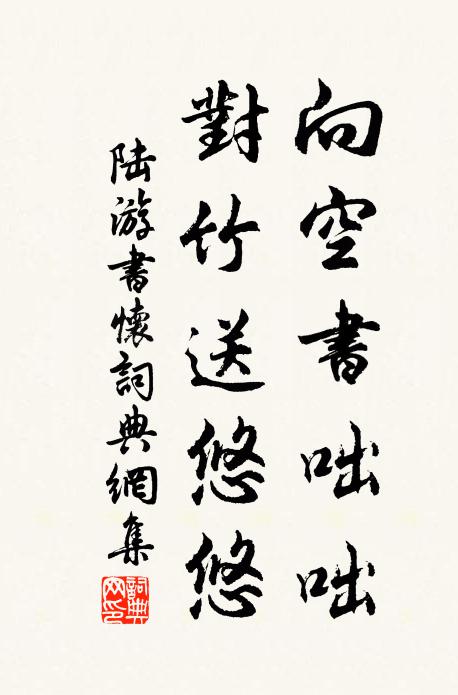 向空書咄咄
對竹送悠悠
陸游書懷詞典網集
詞典
网印